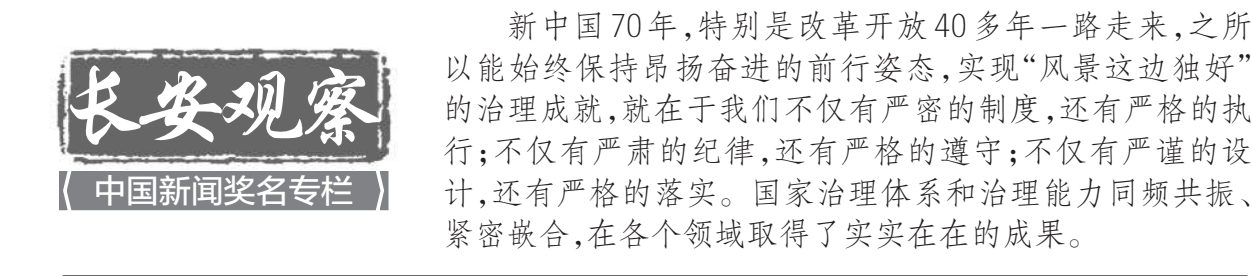 长安观察
中国新闻奖名专栏
新中国70年,特别是改革开放40多年一路走来,之所
以能始终保持昂扬奋进的前行姿态,实现“风景这边独好”
的治理成就,就在于我们不仅有严密的制度,还有严格的执
行;不仅有严肃的纪律,还有严格的遵守;不仅有严谨的设
计,还有严格的落实。国家治理体系和治理能力同频共振、
紧密嵌合,在各个领域取得了实实在在的成果。